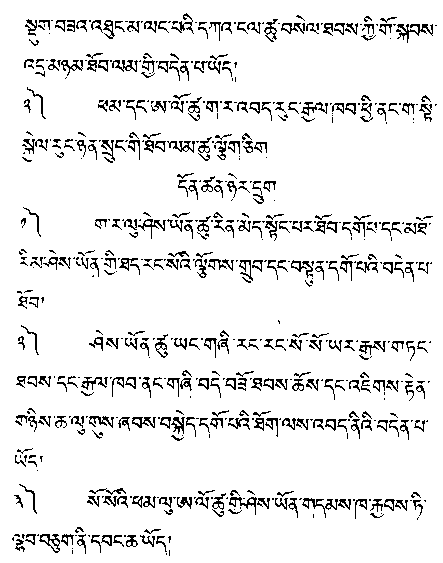 སྡུག་བཟའ་འཐུང་མ་ལང་པའི་དཀའ་ངལ་ཚུ་བསེལ་ཐབས་ཀྱི་གོ་སྐབས་
འདྲ་མཉམ་ཐོབ་ལམ་གྱི་བདེན་པ་ཡོད།
༢༽ ཕམ་དང་ཨ་ལོ་ཚུ་ག་ར་འབད་རུང་རྒྱལ་ཁབ་ཕྱི་ནང་ག་སྟི་
སྐྱེལ་རུང་ཉེན་སྲུང་གི་ཐོབ་ལམ་ཚུ་ལྕོག་ཅིག
དོན་ཚན་ཉེར་དྲུག
༡༽ ག་ར་ལུ་ཤེས་ཡོན་ཚུ་རིན་མེད་སྟོང་པར་ཐོབ་དགོཔ་དང་མཐོ་
རིམ་ཤེས་ཡོན་གྱི་ཐད་རང་སོའི་ལྕོགས་གྲུབ་དང་བསྟུན་དགོ་པའི་བདེན་པ་
ཐོབ།
༢༽ ཤེས་ཡོན་ཚུ་ཡང་གཞི་རང་རང་སོ་སོ་ཡར་རྒྱས་གཏང་
ཐབས་དང་རྒྱལ་ཁབ་ནང་གཞི་བདེ་བཟོ་ཐབས་ཆོས་དང་འཇིགས་རྟེན་
གཉིས་ཆ་ལུ་གུས་ཞབས་བསྐྱེད་དགོ་པའི་ཐོག་ལས་འབད་ནིའི་བདེན་པ་
ཡོད།
༣༽ སོ་སོའི་ཕམ་ལུ་ཨ་ལོ་ཚུ་གྱི་ཤེས་ཡོན་གདམས་ཁ་རྐྱབས་ཏི་
ལྷབ་བཅུག་ནི་དབང་ཆ་ཡོད།